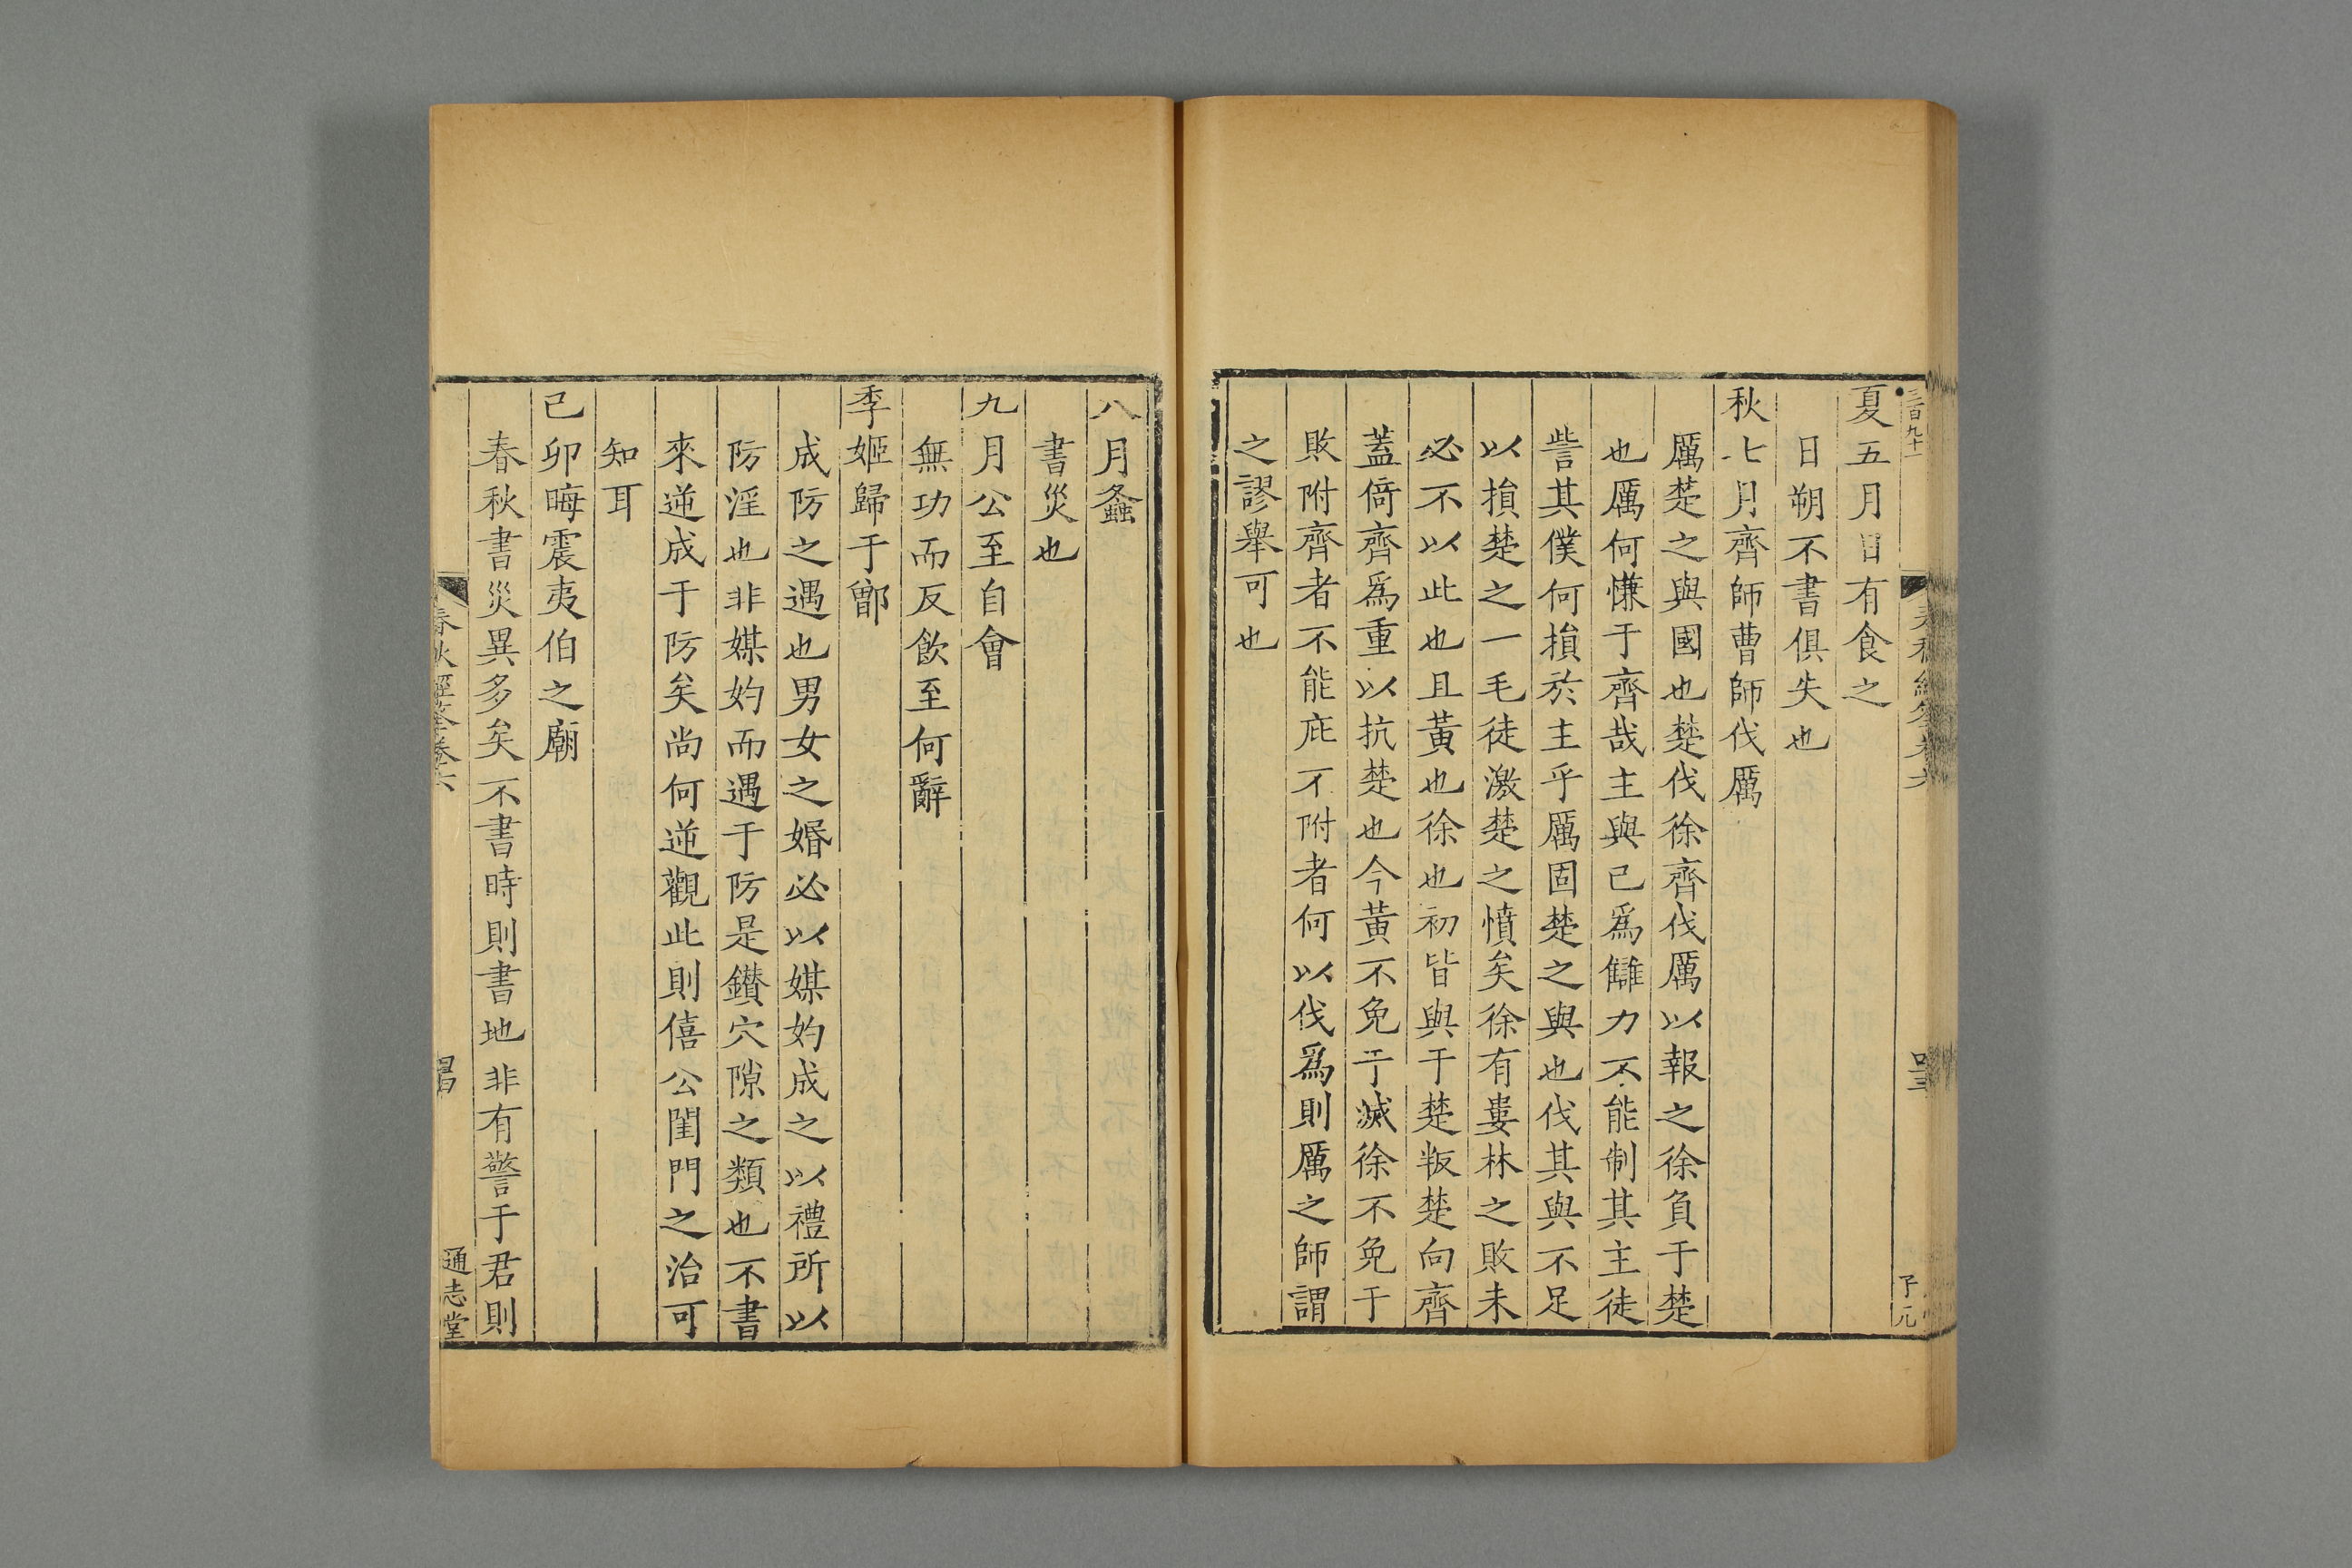 三百九十一
夏五月日有食之
日朔不書俱失也
秋七月齊師曹師伐厲
厲楚之與國也楚伐徐齊伐厲以報之徐負于楚
也厲何慊于齊哉主與已爲讎力不能制其主徒
訾其僕何損於主乎厲固楚之與也伐其與不足
以損楚之一毛徒激楚之憤矣徐有婁林之敗未
必不以此也且黃也徐也初皆與于楚叛楚向齊
蓋倚齊爲重以抗楚也今黃不免于滅徐不免于
敗附齊者不能庇不附者何以伐爲則厲之師謂
之謬舉可也
八月螽
書災也
九月公至自會
無功而反飲至何辭
季姬歸于鄫
成防之遇也男女之婚必以媒妁成之以禮所以
防淫也非媒妁而遇于防是鑚穴隙之類也不書
來逆成于防矣尚何逆觀此則僖公閨門之治可
知耳
己卯晦震夷伯之廟
春秋書災異多矣不書時則書地非有警于君則
春秋經筌卷六
通志堂